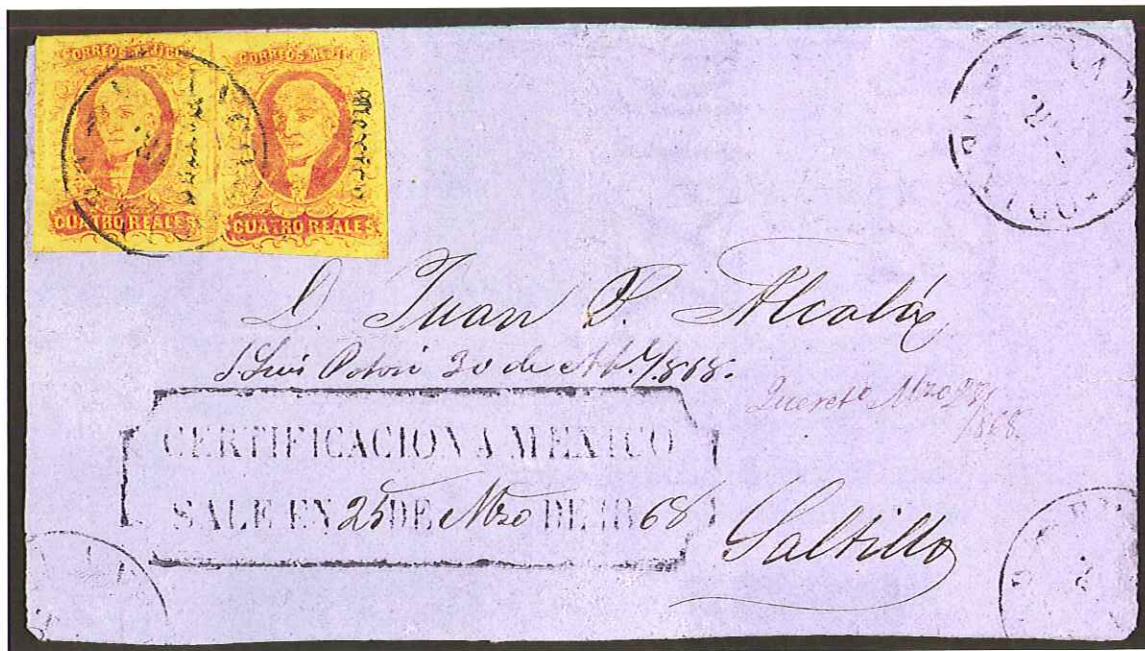 CORREOS MEJICO CORREOS MEJICO
Mexico
CUATRO REALES CUATRO REALES
D. Juan P. Alcalá
S. Luis Potosi 30 de Ab. 1/868.
Querét° Mzo 27/
/868.
CERTIFICACION A MEXICO
SALE EN 25 DE Mzo DE 1868
Saltillo